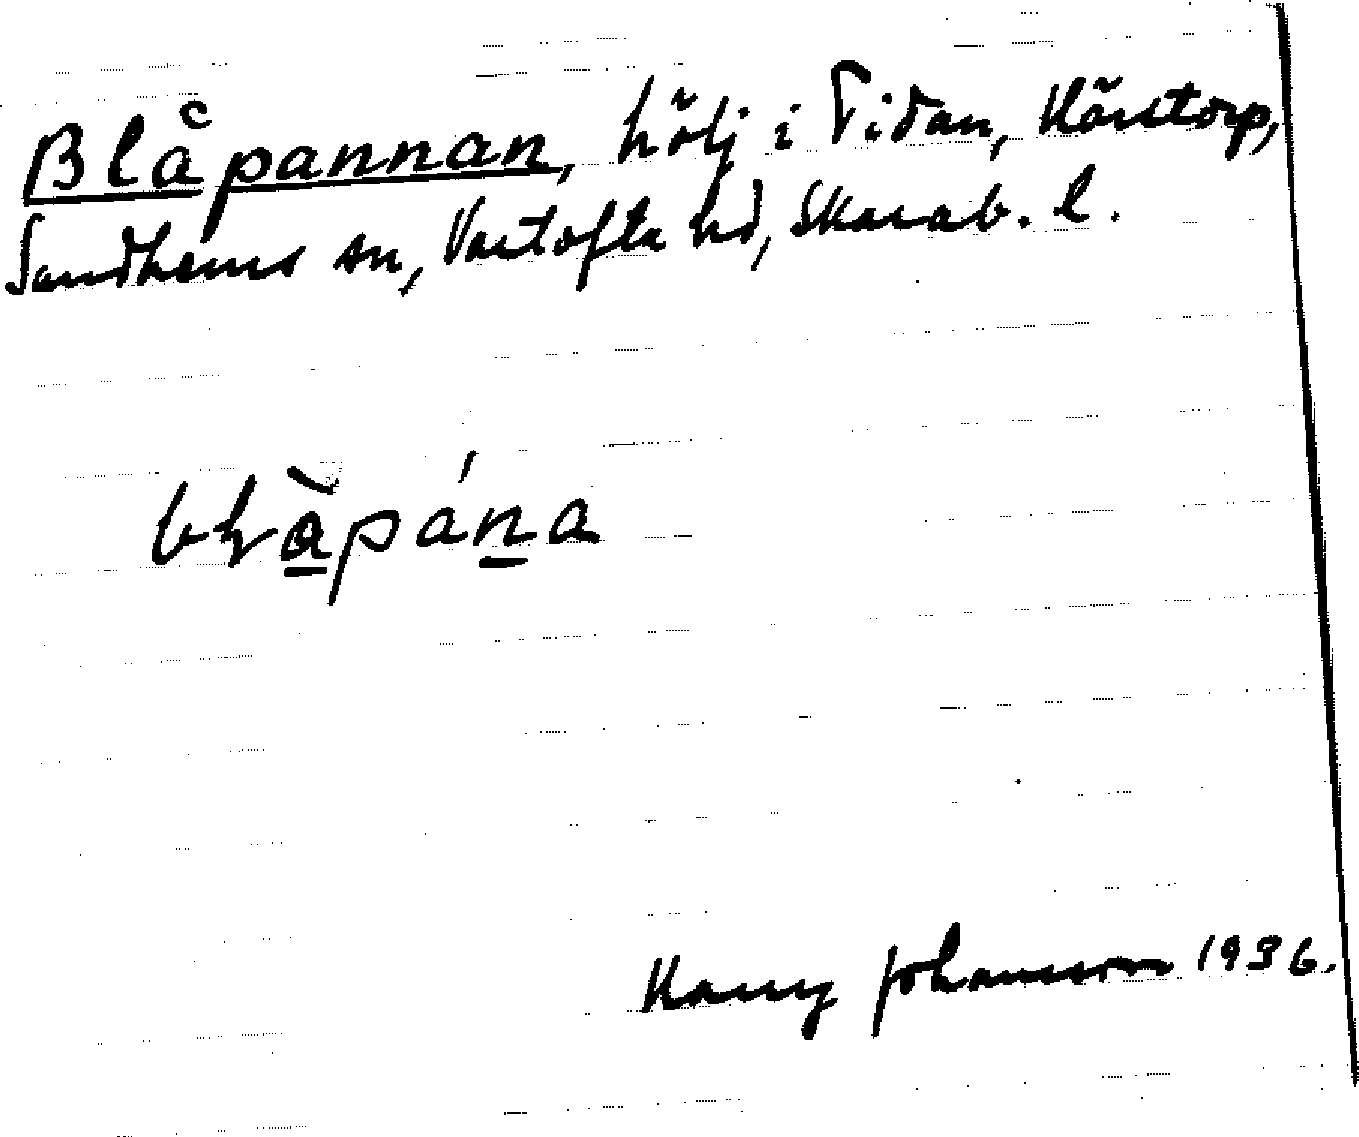 Blåpannan, hölj i Tidan, Härstorp,
Sandhems sn, Vartofta hd, Skarab. l.
Harry Johansson 1936.